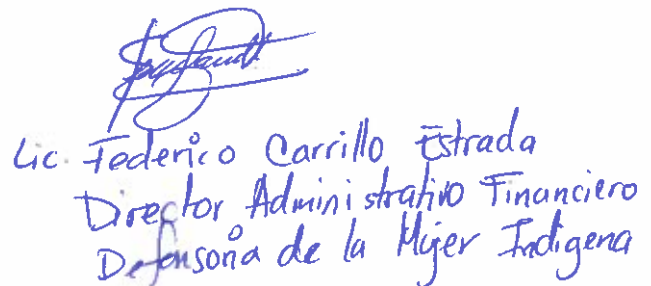 Lic. Federico Carrillo Estrada
Director Administrativo Financiero
Defensoría de la Mujer Indigena